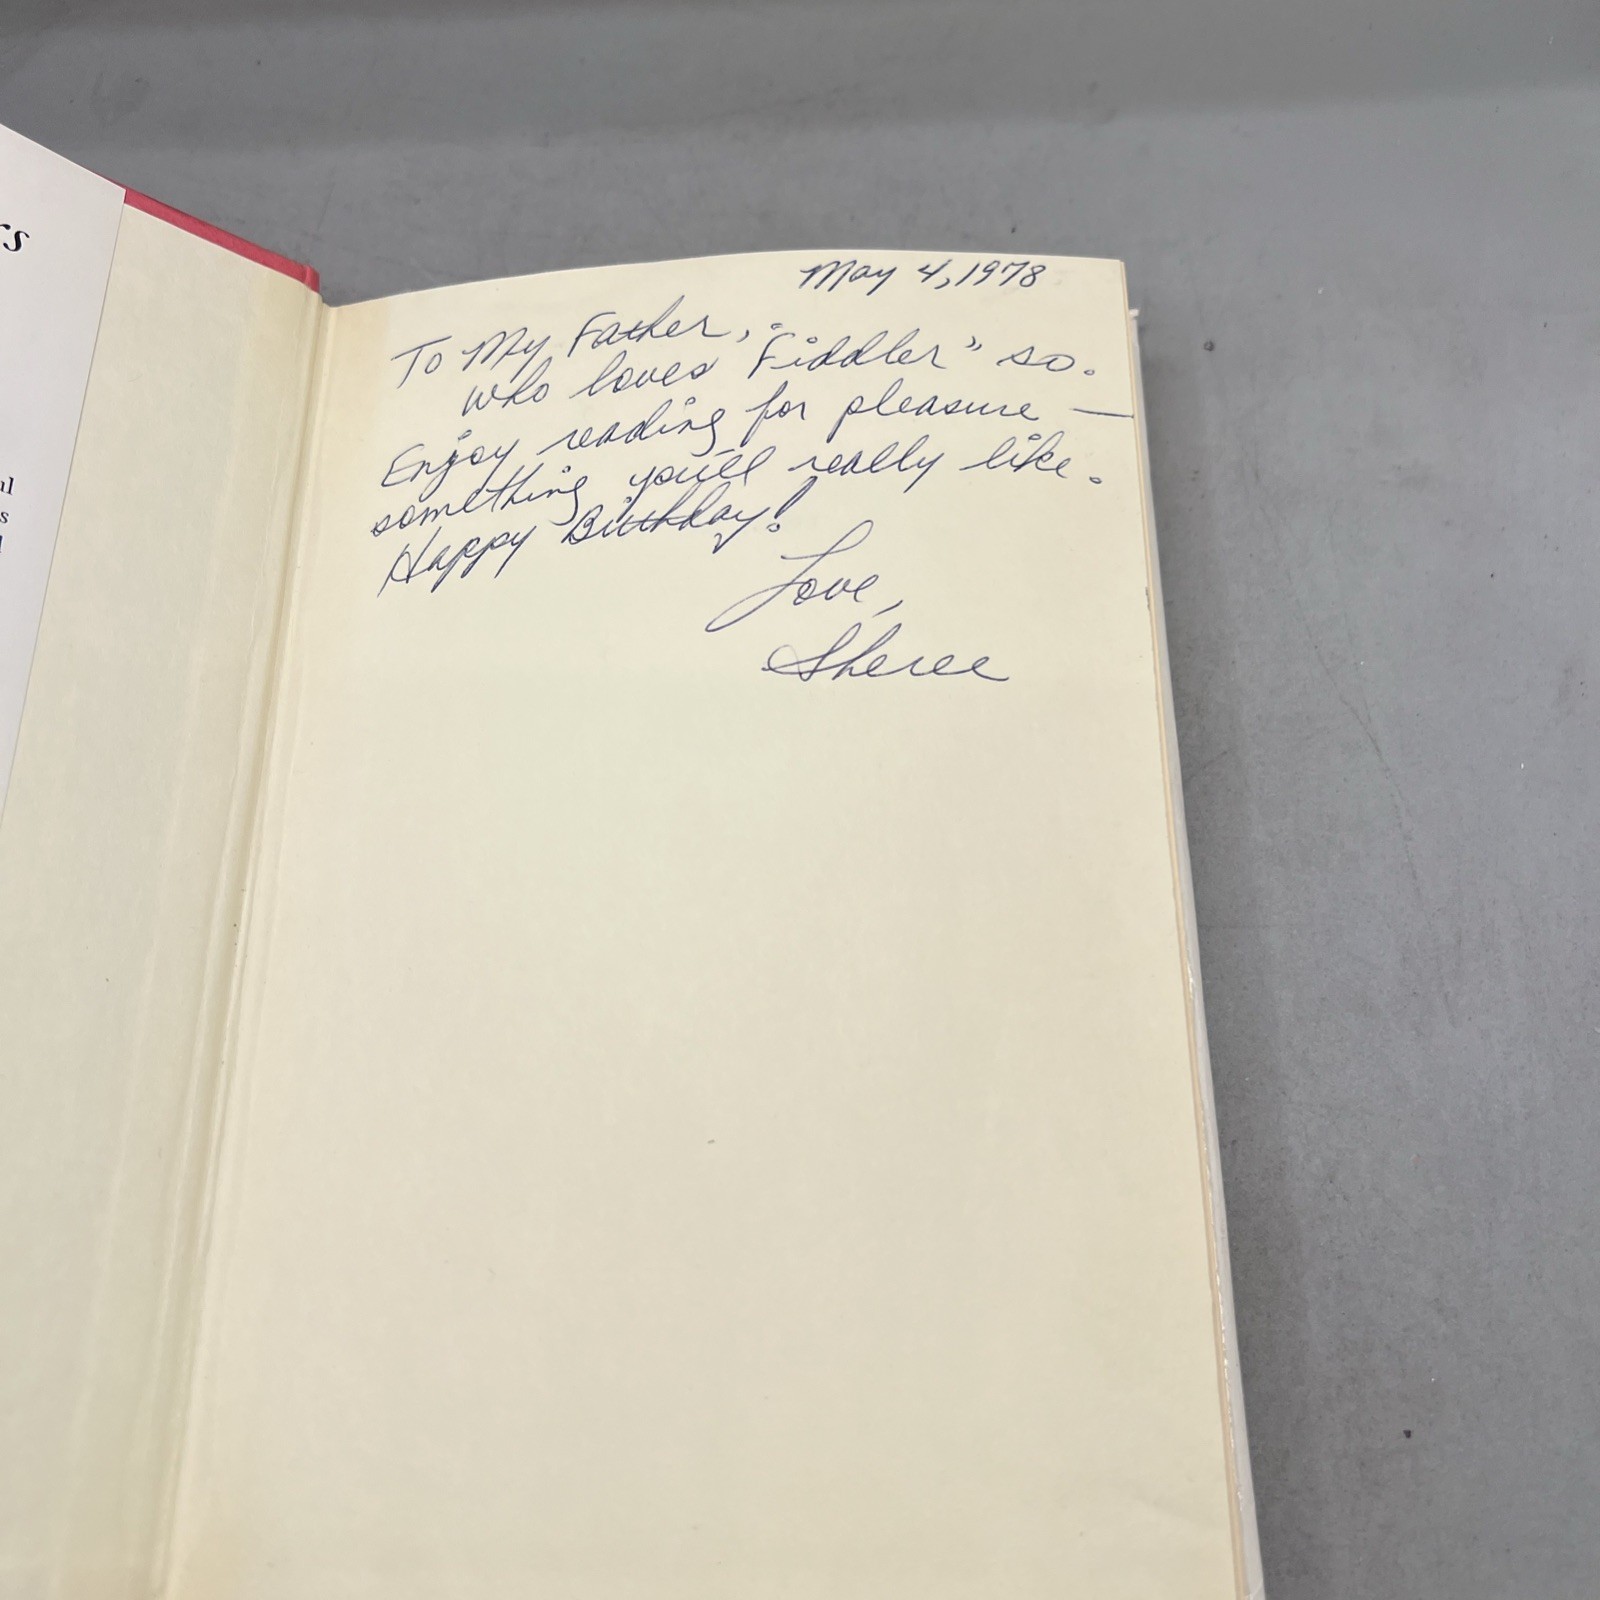 rs
al
s
May 4, 1978
To My Father,
who loves "Fiddler" so.
Enjoy reading for pleasure —
something you'll really like.
Happy Birthday!
Love,
Sheree